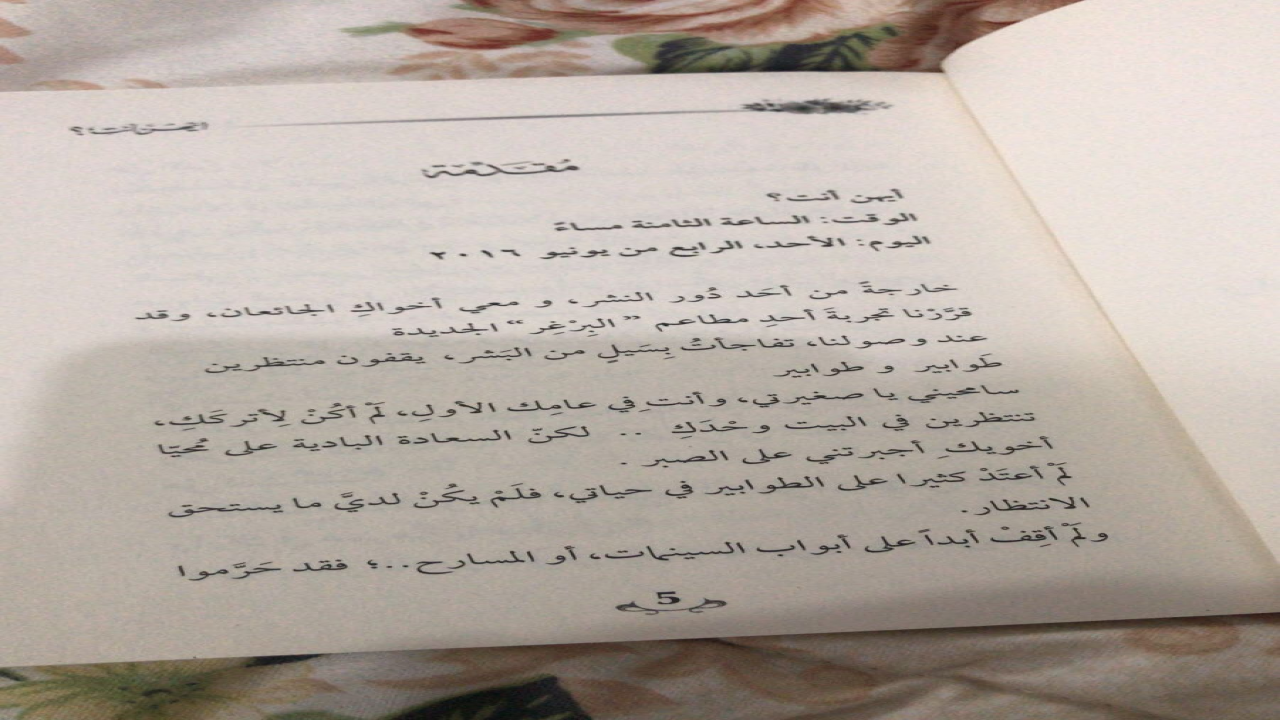 أيهن أنت؟
مُقَدِّمَة
أيهن أنت؟
الوقت: الساعة الثامنة مساءً
اليوم: الأحد، الرابع من يونيو ٢٠١٦
خارجةً من أحَد دُور النشر، و معي أخواكِ الجائعان، وقد
قرَّرْنا تجربةَ أحدِ مطاعم ”البِرْغِر“ الجديدة
عند وصولنا، تفاجأتُ بِسَيلٍ من البَشر، يقفون منتظرين
طَوابير و طوابير
سامحيني يا صغيرتي، وأنتِ في عامِك الأولِ، لَمْ أكُنْ لِأتركَكِ،
تنتظرين في البيت وحْدَكِ .. لكنّ السعادة البادية على مُحيّا
أخويكِ أجبرتني على الصبر .
لَمْ أعتَدْ كثيرا على الطوابير في حياتي، فلَمْ يكُنْ لديَّ ما يستحق
الانتظار.
ولَمْ أقِفْ أبداً على أبواب السينمات، أو المسارح..؛ فقد حَرَّموا
5